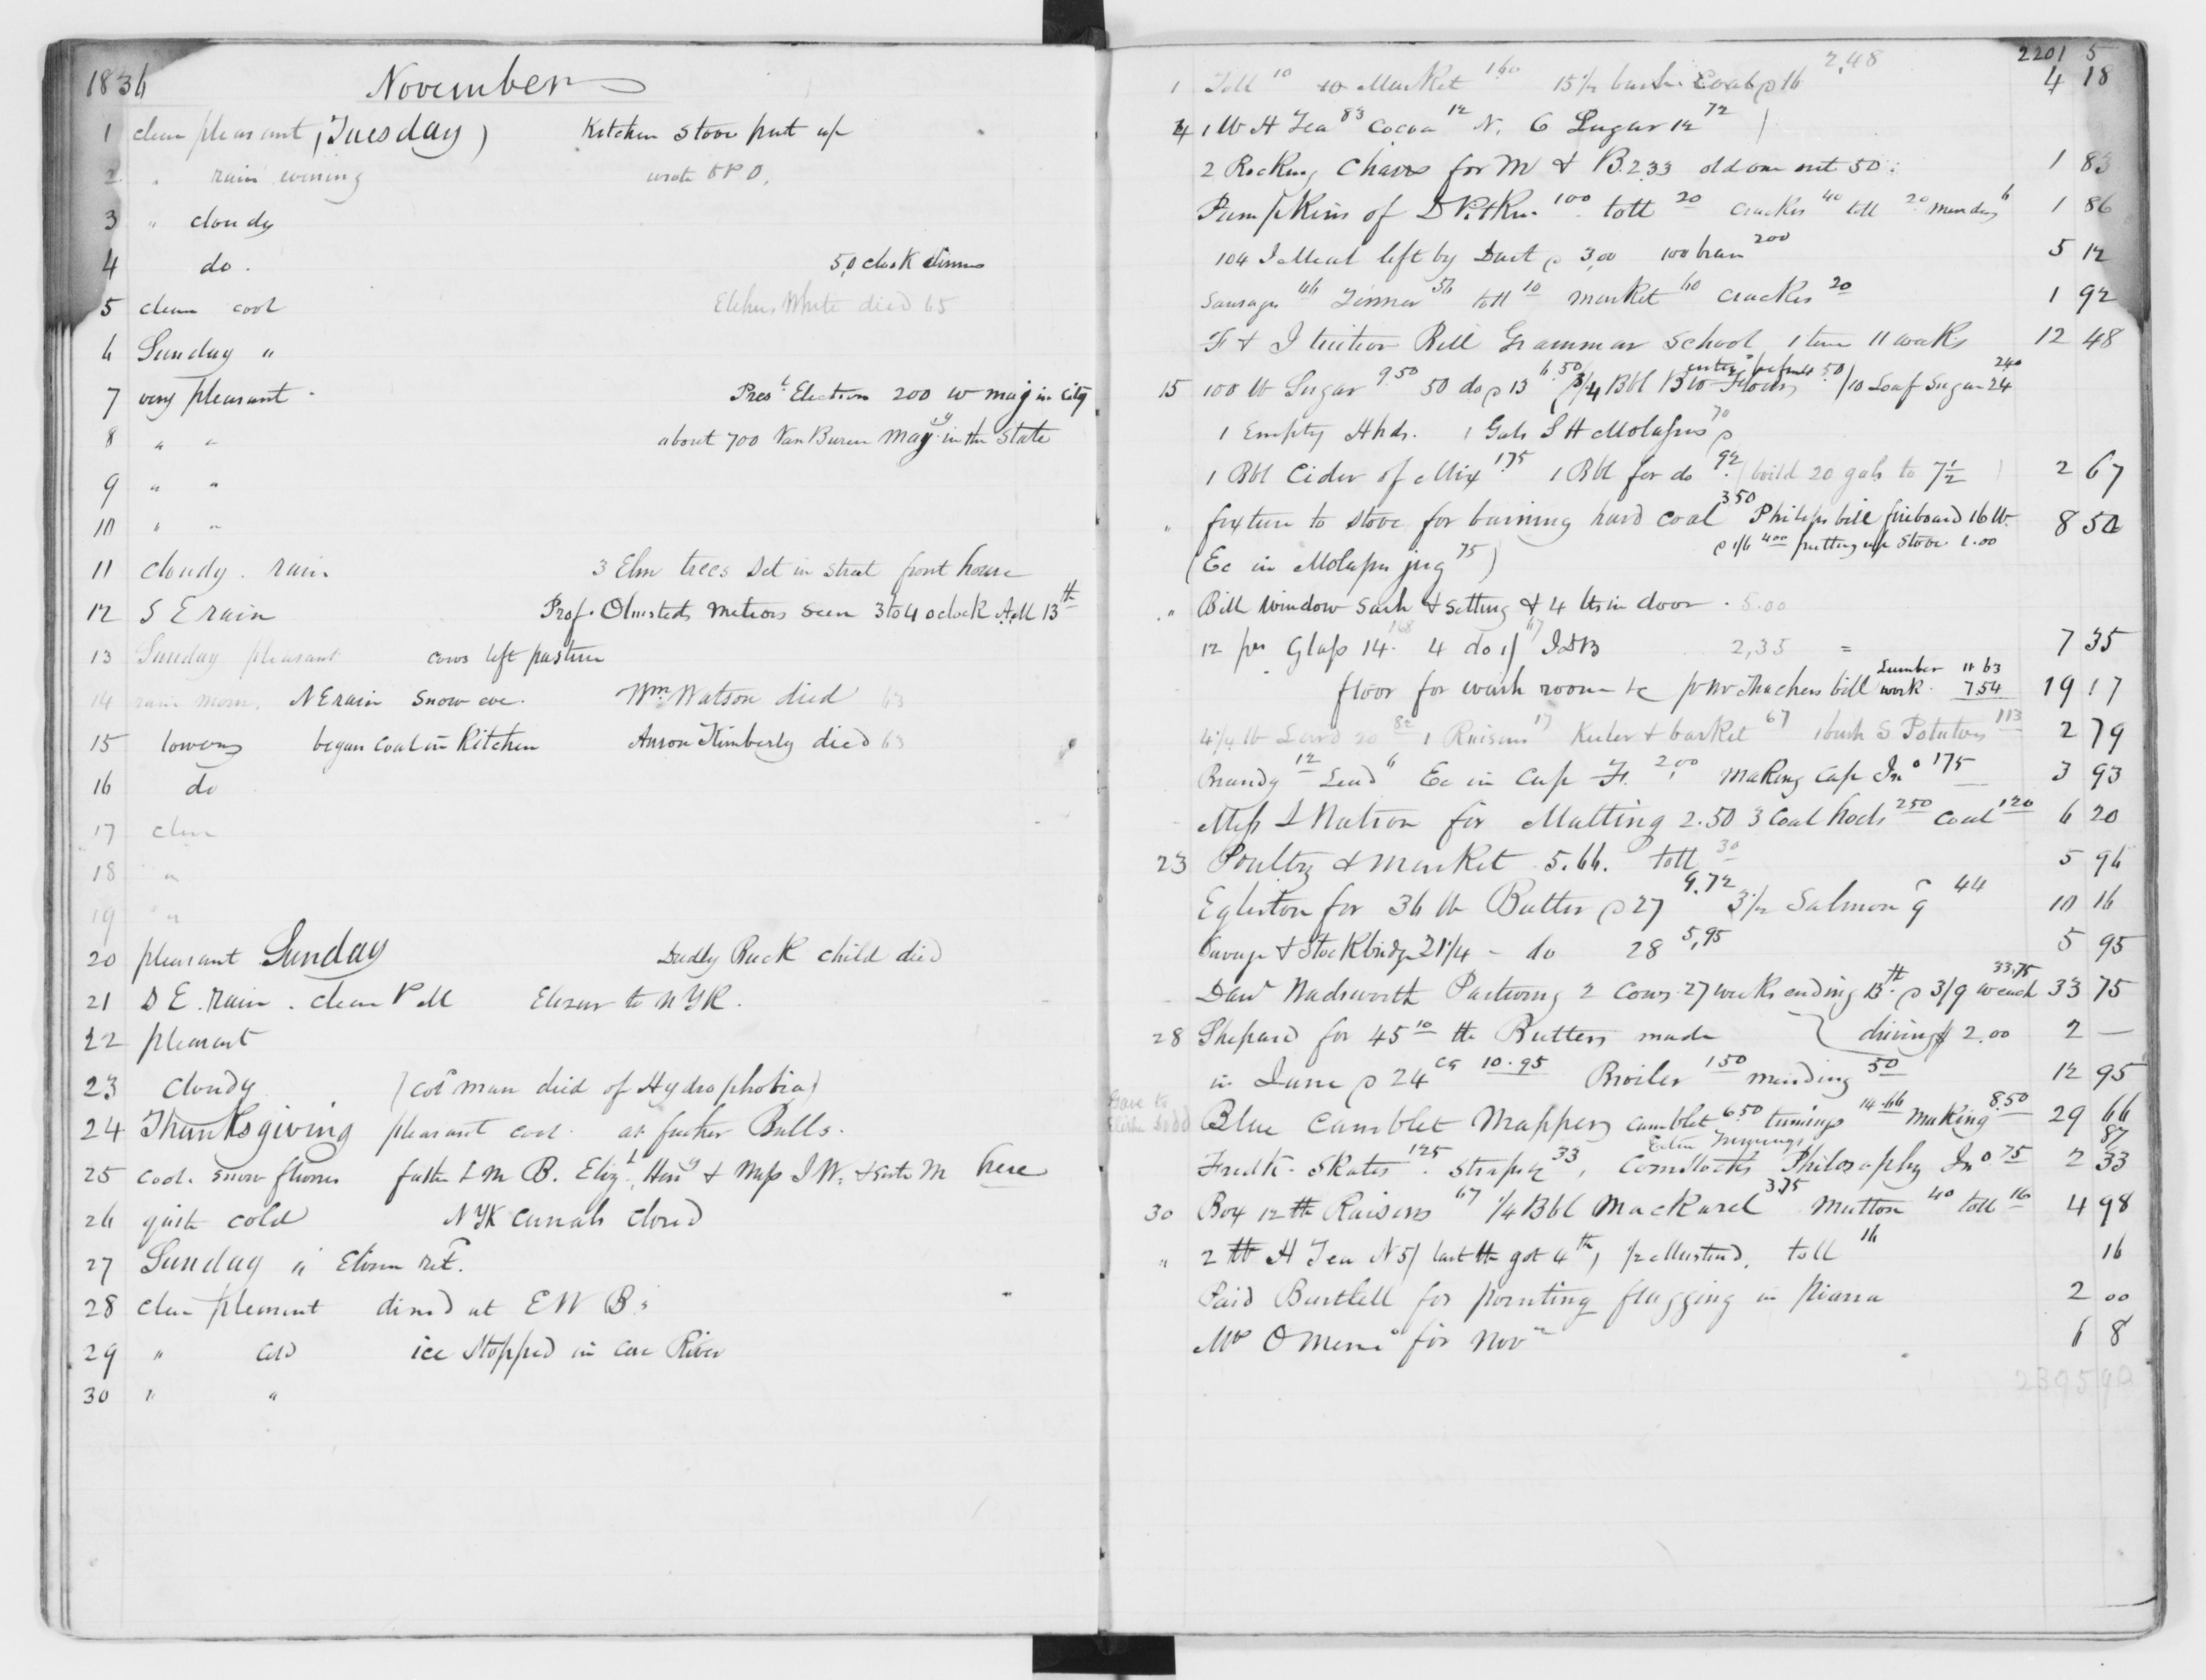 1836 November
1 clear pleasant (Tuesday) Kitchen Stove put up
2 " rain evening wrote
3 " cloudy
4 do. 5,0 clock dinner
5 clear cool White died 65
6 Sunday "
7 very pleasant Prest Election 200 w maj in City
8 " " about 700 Van Buren majy in the State
9 " "
10 " "
11 cloudy . rain 3 Elm trees set in street front house
12 S E rain Prof. Olmsteds meteors seen 3 to 4 oclock AM 13th
13 Sunday pleasant cows left pasture
14 rain morn. N E rain Snow eve. Wm Watson died 63
15 lowery began coal in Kitchen Anson Kimberly died 63
16 do
17 clear
18 "
19 "
20 pleasant Sunday Dudly Buck child died
21 S E. rain . clear P M to N YK.
22 pleasant
23 cloudy (cold man died of Hydrophobia)
24 Thanksgiving pleasant cool. at father Bulls.
25 cool. snow fath L M B. Elizth, Hen & Miss I W. & M here
26 quite cold N YK canals closed
27 Sunday "
28 clear pleasant dined at E W B s
29 " cold ice stopped in River
30 " "
2201 5
1 Toll 10 Market 160 15 1/2 coal @ 16 2,48 4 18
4 1 lb H Tea 83 cocoa 12 N. 6 Sugar 12 72
2 Rocking Chairs for M & B. 2.33 old one 50 : 1 83
Pumpkins of 100 toll 20 cracker 40 toll 20 mending 6 1 86
104 I Meal left by Dart @ 3,00 100 bran 200 5 12
Sausages 46 56 toll 10 market 60 cracker 20 1 92
F & J tuition Bill Grammar School 1 term 11 weeks 12 48
15 100 lb Sugar 9.50 50 do @ 13 6.50 3/4 Bbl 10 Loaf Sugar 24 240
1 Empty Hhds. 1 Gals S H Molasses 70
1 Bbl Cider of Mix 1.75 1 Bbl for do 92 20 gals to 7 1/2 2 67
" fixture to stove for burning hard coal 350 Philips bill fireboard 16 lb. 8 50
@ 1/6 400 putting up stove 1.00
(Ec in Molasses jug 75)
" Bill window sash & setting & 4 lts in door . 5.00
12 pr Glass 14. 168 4 do 67 2,35 = 7 35
floor for wash room &c pr Thachers bill Lumber 11 63 work. 7 54 19 17
4 1/4 lb Lard 20 82 1 Raisins 17 Keeler & basket 67 1 bush S Potatoes 113 2 79
Brandy 12 Lead 6 Ec in Cap F. 2,00 making Cap Jno 175 3 93
Miss L Watson for Matting 2.50 3 Coal hods 250 coal 120 6 20
23 Poultry & market 5.66. toll 30 5 96
Egleston for 36 lb Butter @ 27 9.72 3 1/2 Salmon 44 10 16
Savage & Stockbridge 21 1/4 - do 28 5,95 5 95
Danl Wadsworth Pasturing 2 cows 27 weeks ending 13th @ 3/9 w each 33.75 33 75
28 Shepard for 45 10 lb Butter made driving 2.00 2 —
in June @ 24 cs 10.95 Broiler 150 mending 50 12 95
Gave to Dodd
Blue Camblet Wrapper camblet 6.50 trimings 14.66 making 8.50 29 66
87
Fredk. Skates 125. straps 33, Comstocks Philosophy Jno 75 2 33
30 Box 12 lb Raisins 67 1/4 Bbl Mackarel 3.75 Mutton 40 toll 16 4 98
" 2 lb H Tea N 5/ last lb got 4th, 1/2 Mustard, toll 16 16
Paid Bartlett for pointing flagging in piazza 2 00
for Nov 6 8
2395 90